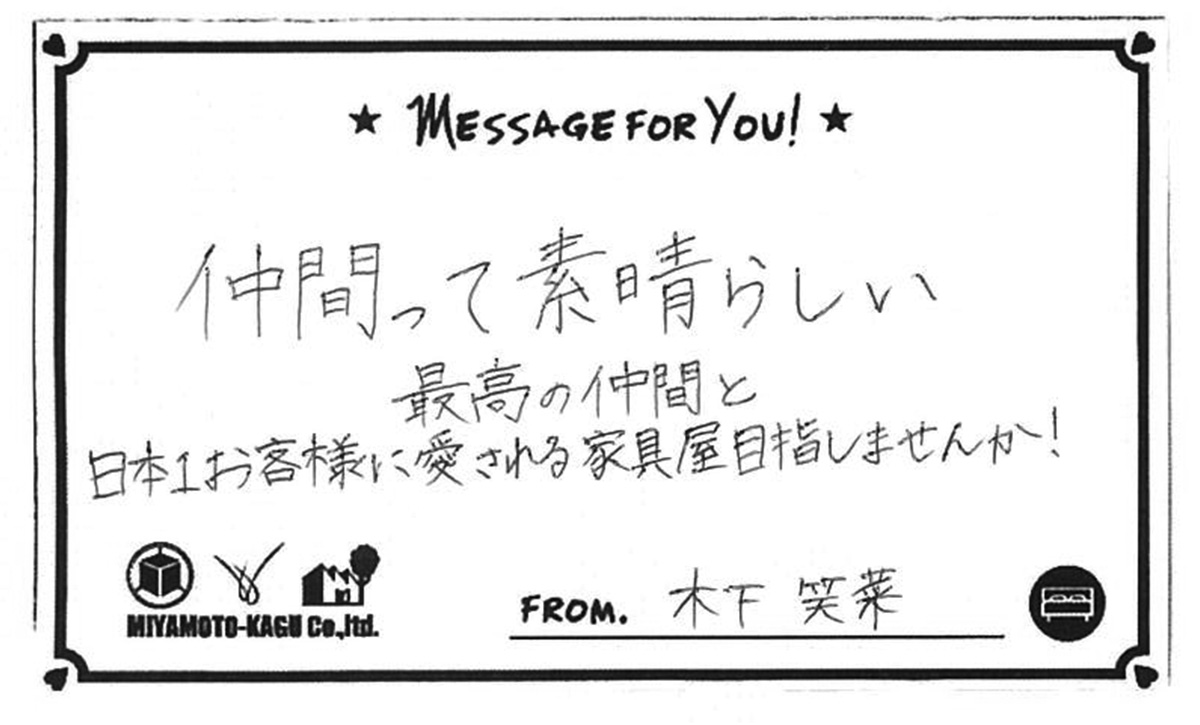 ★ MESSAGE FOR YOU! ★
仲間って素晴らしい
最高の仲間と
日本1お客様に愛される家具屋目指しませんか!
MIYAMOTO-KAGU Co.,ltd.
FROM. 木下 笑菜